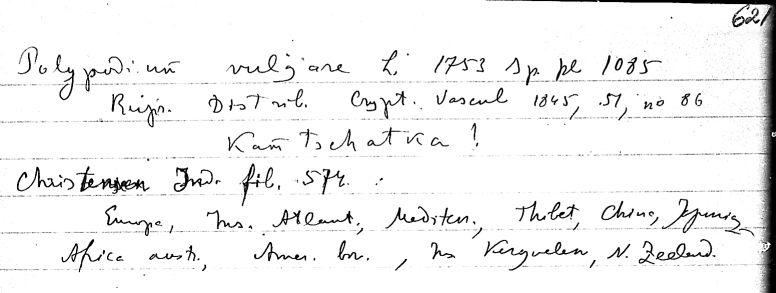 621
Polypodium vulgare L. 1753 Sp. pl 1085
Rupr. Distrib. Crypt. Vascul 1845, 51, no 86
Kamtschatka!
Christensen Ind. fil. 574 :
Europa, Ins. Atlant, Mediterr., Thibet, China, Japonia
Africa austr., Amer. bor., Ins Kerguelen, N. Zeeland.